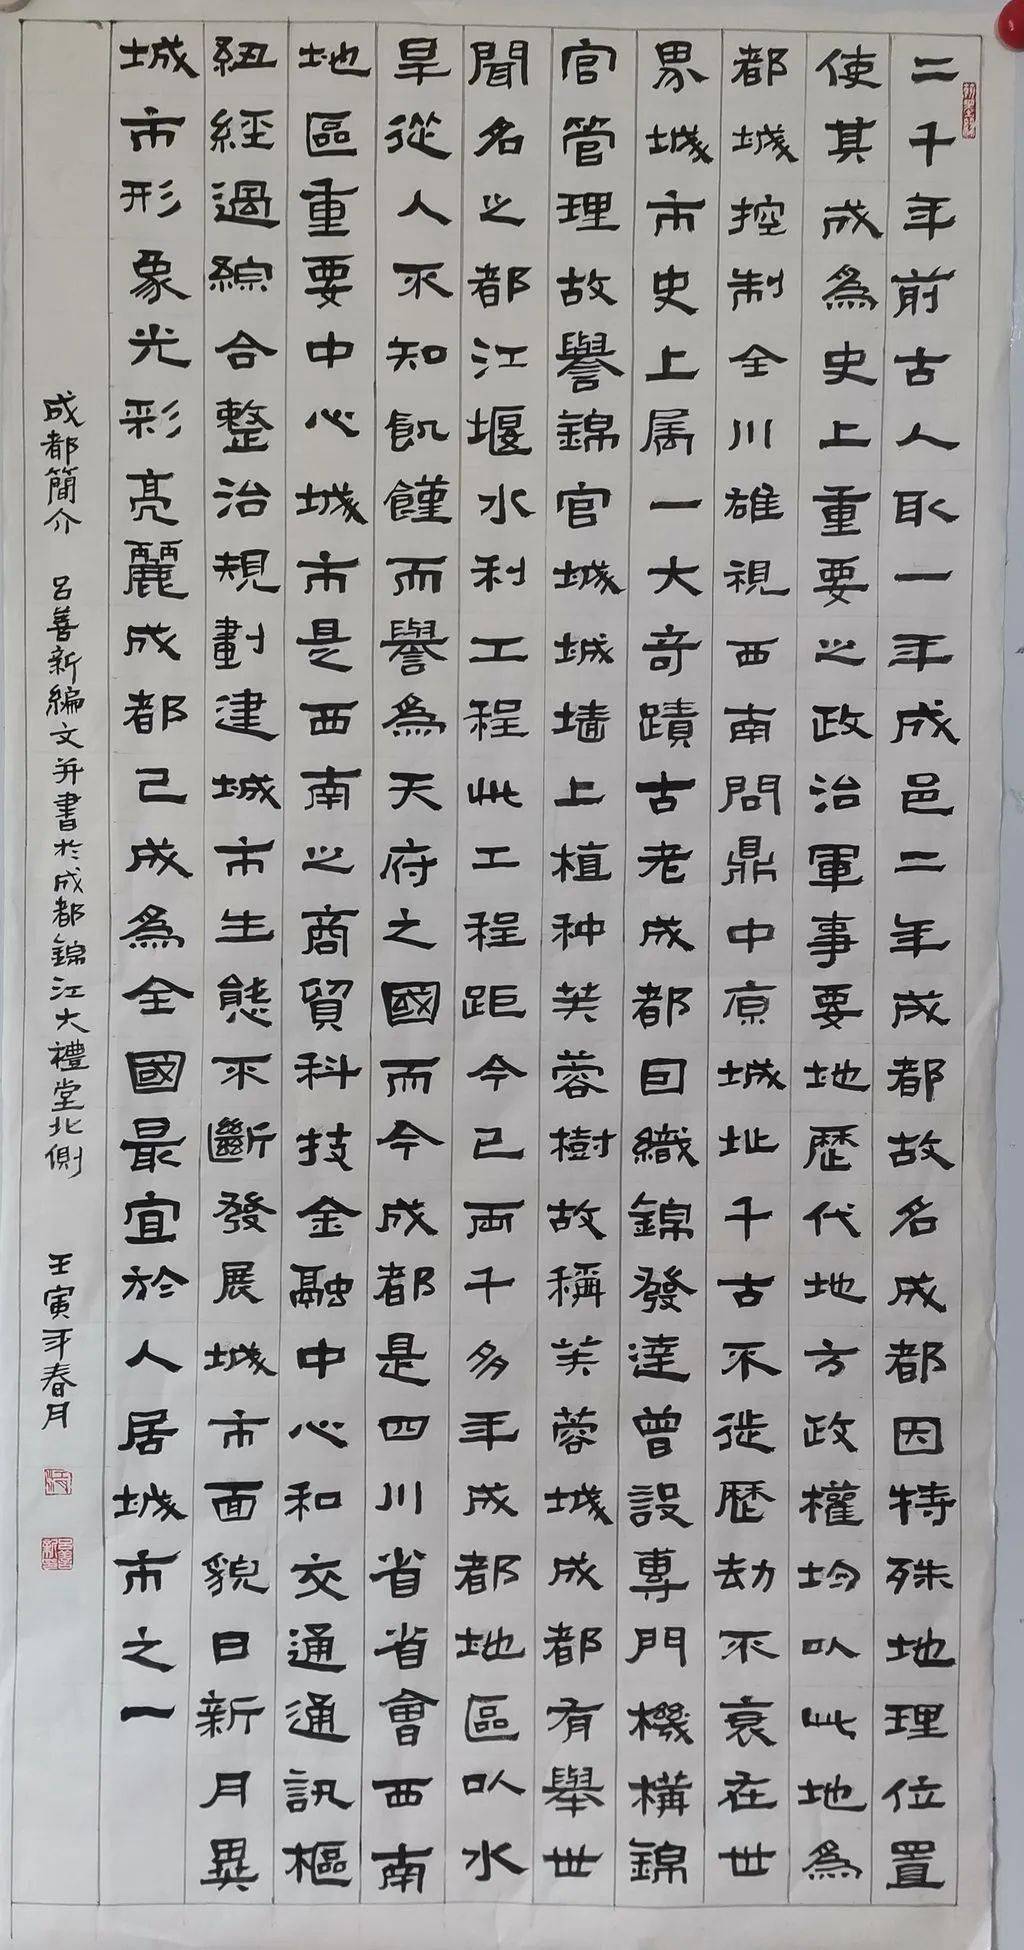 二千年前古人取一年成邑二年成都故名成都因特殊地理位置
使其成為史上重要之政治軍事要地歷代地方政權均以此地為
都城控制全川雄視西南問鼎中原城址千古不徙歷劫不衰在世
界城市史上属一大奇蹟古老成都因織錦發達曾設專門機構錦
官管理故譽錦官城城墙上植种芙蓉樹故稱芙蓉城成都有舉世
聞名之都江堰水利工程此工程距今已兩千多年成都地區以水
旱從人不知飢饉而譽為天府之國而今成都是四川省省會西南
地區重要中心城市是西南之商貿科技金融中心和交通通訊樞
紐經過綜合整治規劃建城市生態不斷發展城市面貌日新月異
城市形象光彩亮麗成都已成為全國最宜於人居城市之一
成都簡介 吕善新編文并書於成都錦江大禮堂北側 壬寅年春月